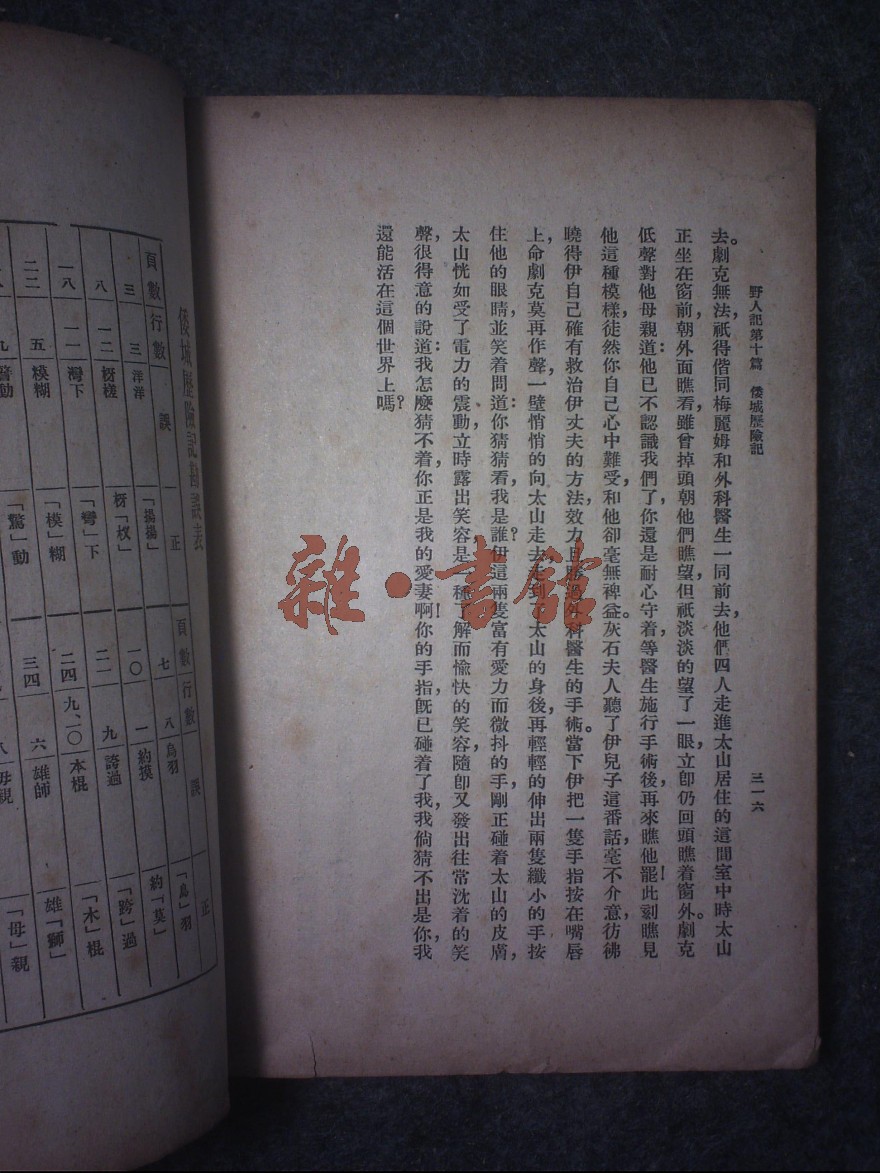 野人記第十篇　倭城歷險記
三一六
去。劇克無法，祇得偕同梅麗姆和外科醫生一同前去，他們四人走進太山居住的這間室中時，太山
正坐在窗前，朝外面瞧看，雖曾掉頭朝他們瞧望，但祇淡淡的望了一眼，立卽仍回頭瞧着窗外。劇克
低聲對他母親道：他已不認識我們了，你還是耐心守着，等醫生施行手術後，再來瞧他罷！此刻瞧見
他這種模樣，徒然你自己心中難受，和他卻毫無裨益。灰石夫人聽了伊兒子這番話，毫不介意，彷彿
曉得伊自己確有救治伊丈夫的方法，效力且勝過外科醫生的手術。當下伊把一隻手指按在嘴唇
上，命劇克莫再作聲，一壁悄悄的向太山走去，走到了太山的身後，再輕輕的伸出兩隻纖小的手按
住他的眼睛，並笑着問道：你猜猜看，我是誰？伊這兩隻富有愛力而微抖的手，剛正碰着太山的皮膚，
太山恍如受了電力的震動，立時露出笑容，是一種了解而愉快的笑容，隨卽又發出往常沈着的笑
聲，很得意的說道：我怎麼猜不着，你正是我的愛妻啊！你的手指，旣已碰着了我，我倘猜不出是你，我
還能活在這個世界上嗎？
雜·書館
倭城歷險記勘誤表
頁數 行數 誤 正 頁數 行數 誤 正
三 三 洋洋 「揚揚」 七 八 鳥羽 「鳥」羽
八 一二 枒槎 枒「杈」 一〇 一 約莫 約「莫」
一八 一一 灣下 「彎」下 二一 九 誇過 「跨」過
二二 五 模糊 「模」糊 二四 九、一〇 本棍 「木」棍
九 警動 「驚」動 三四 六 雄師 雄「獅」
八 毋親 「母」親